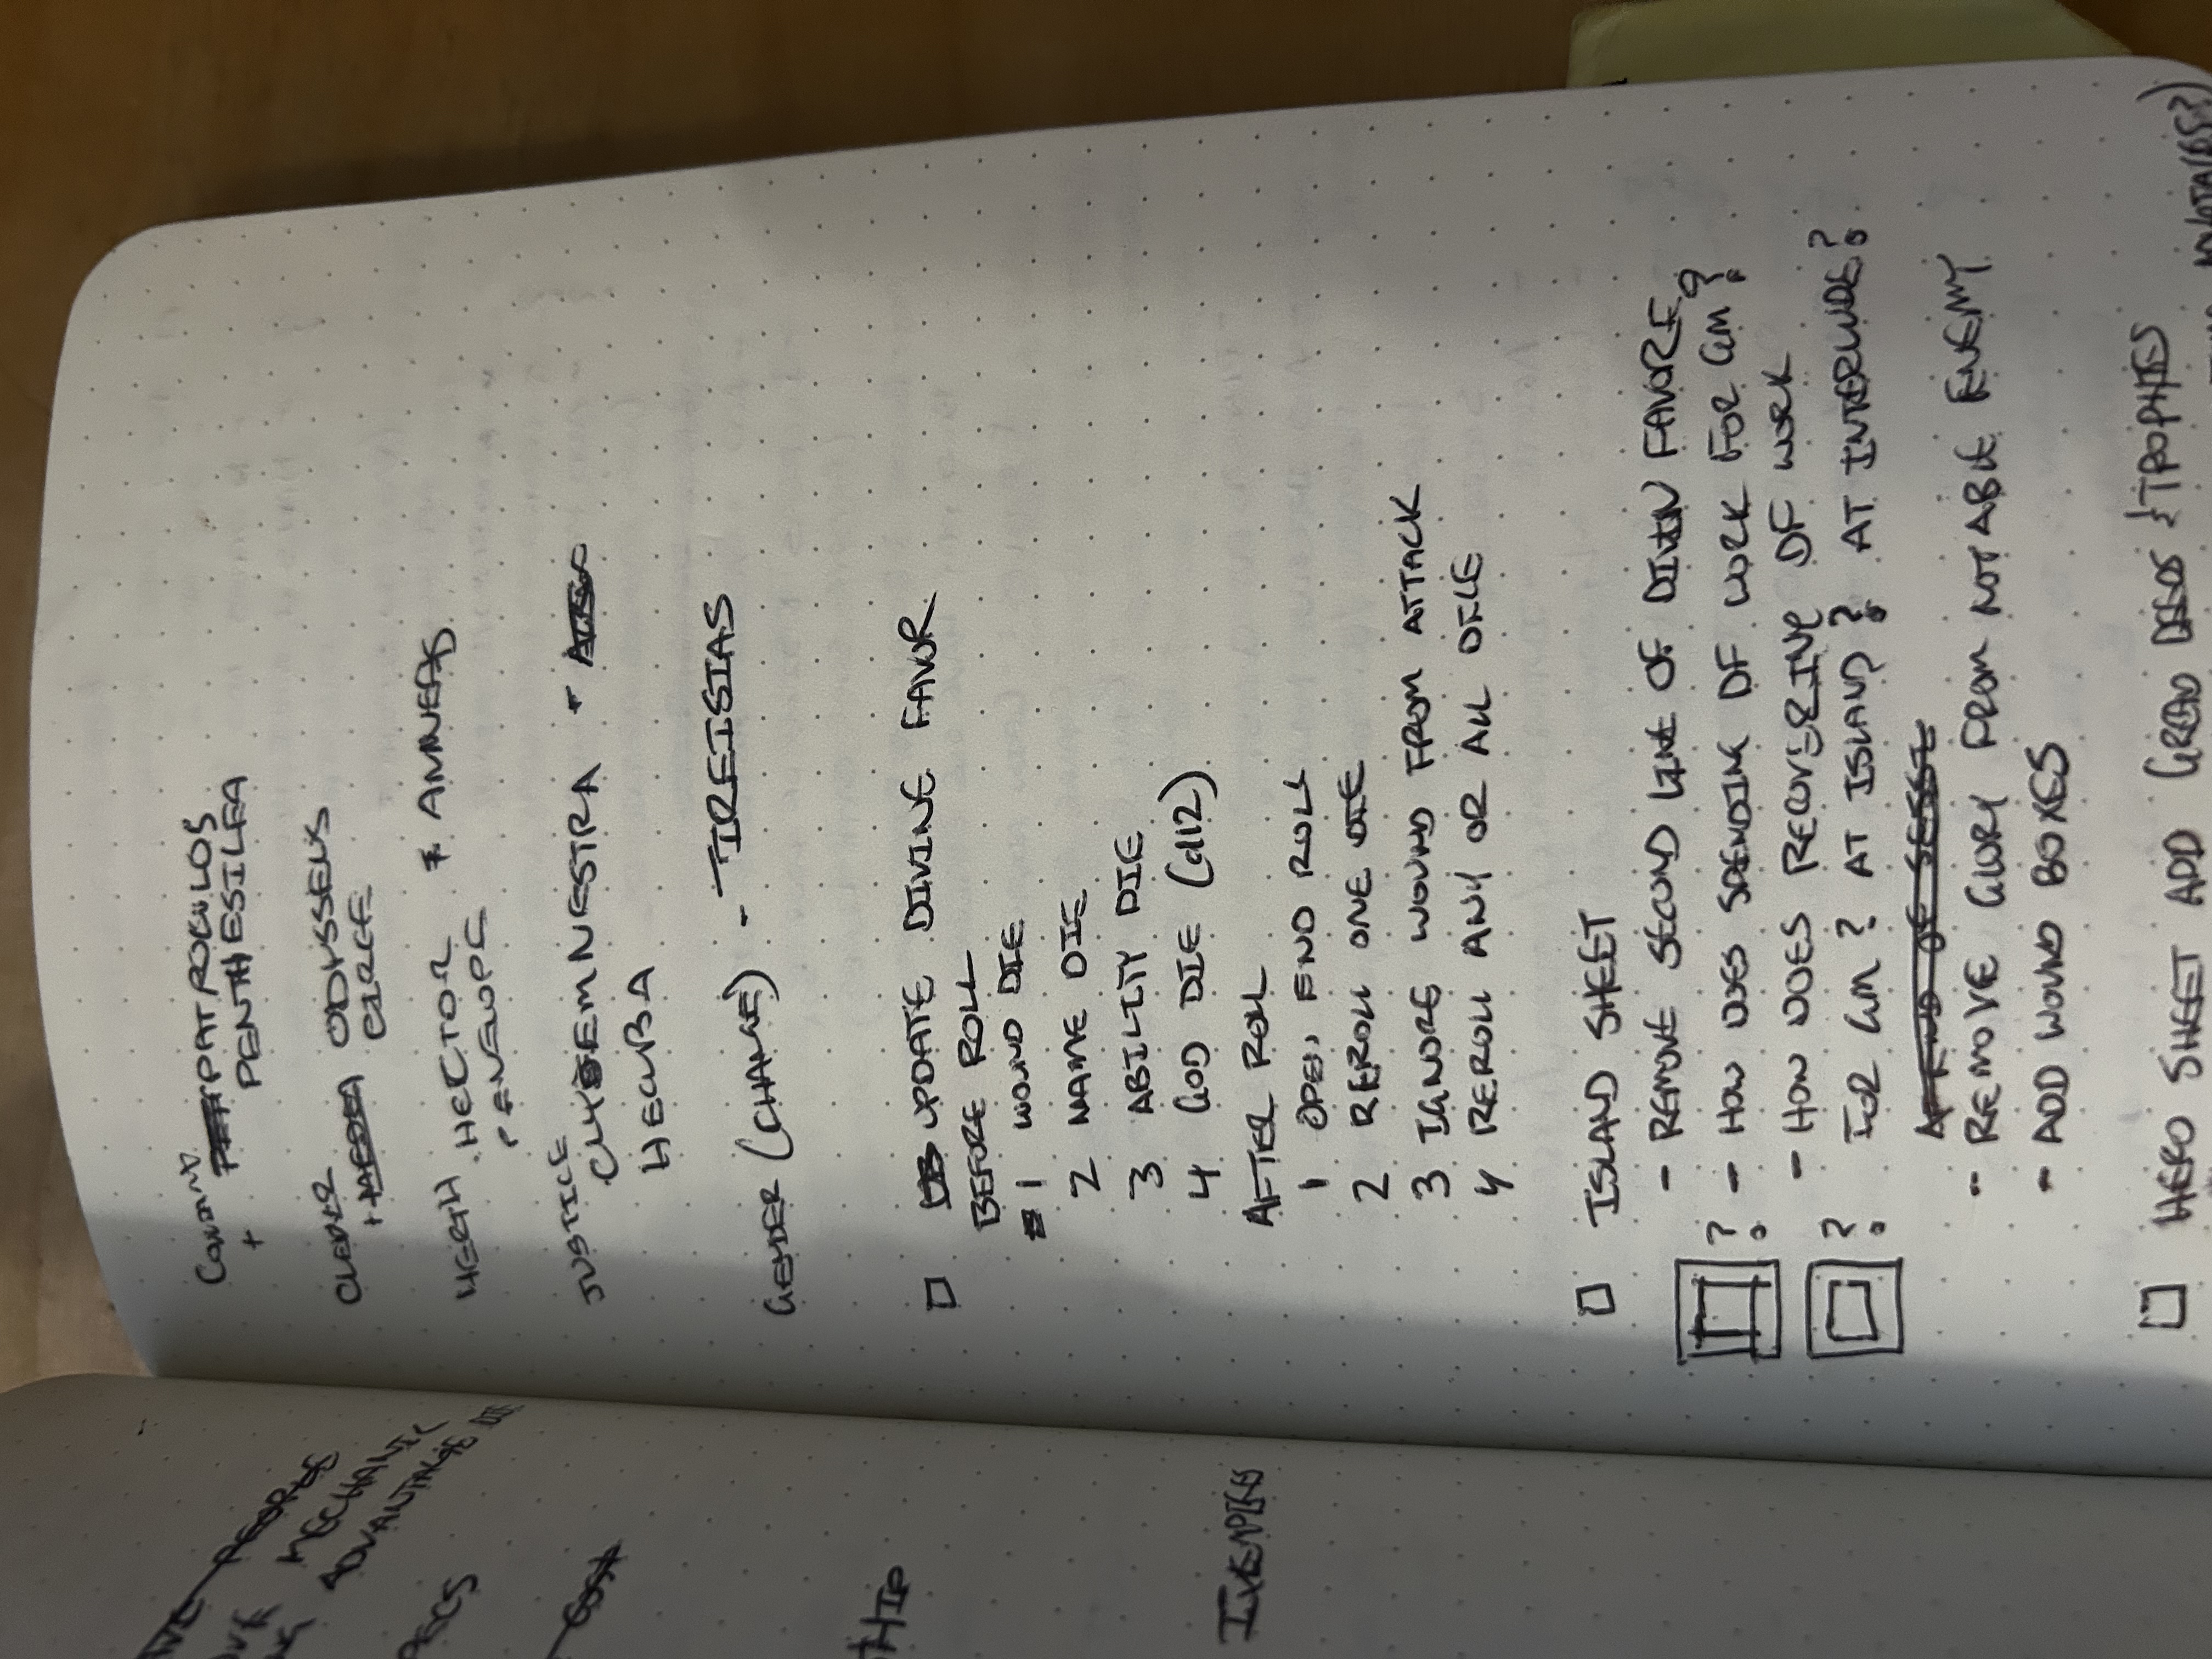 PATROCULOS
+ PENTHESILEA
CLEVER ODYSSEUS
+ MEDEA CIRCE
HEARTH HECTOR + AMNEAS
PENELOPE
JUSTICE
CLYTEMNESTRA +
HECUBA
GENDER (CHANGE) - TIREISIAS
□ UPDATE DIVINE FAVOR
BEFORE ROLL
1 WOUND DIE
2 NAME DIE
3 ABILITY DIE
4 GOD DIE (d12)
AFTER ROLL
1 OPEN END ROLL
2 REROLL ONE DIE
3 IGNORE WOUND FROM ATTACK
4 REROLL ANY OR ALL DICE
□ ISLAND SHEET
- REMOVE SECOND LINE OF DIVIN FAVORE
? - HOW DOES SPENDING DF WORK FOR GM?
- HOW DOES RECOVERING DF WORK
? FOR GM? AT ISLAND? AT INTERLUDE?
- REMOVE GLORY FROM NOTABLE ENEMY
- ADD WOUND BOXES
□ HERO SHEET ADD GREAD DEEDS & TROPHIES
MECHANIC
ADVANTAGE